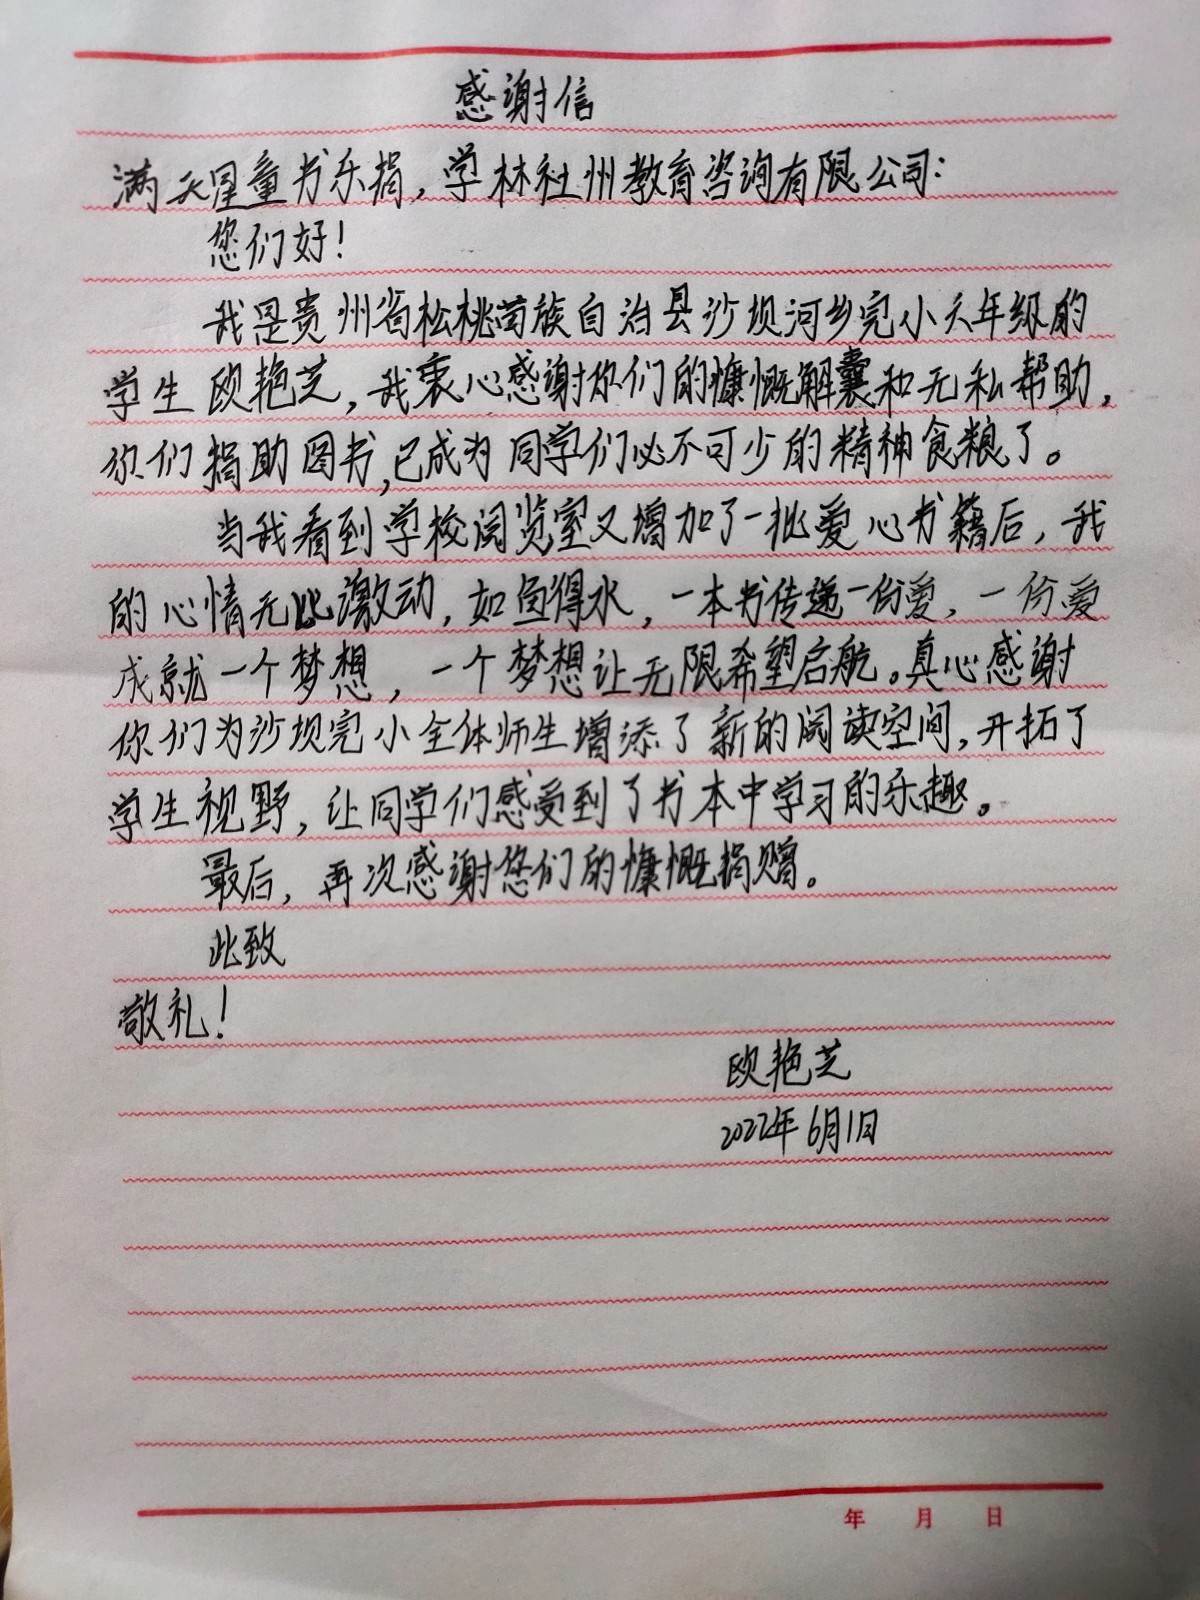 感谢信
满天星童书乐捐，学林社州教育咨询有限公司：
您们好！
我是贵州省松桃苗族自治县沙坝河乡完小六年级的
学生欧艳芝，我衷心感谢你们的慷慨解囊和无私帮助，
你们捐助图书，已成为同学们必不可少的精神食粮了。
当我看到学校阅览室又增加了一批爱心书籍后，我
的心情无比激动，如鱼得水，一本书传递一份爱，一份爱
成就一个梦想，一个梦想让无限希望启航。真心感谢
你们为沙坝完小全体师生增添了新的阅读空间，开拓了
学生视野，让同学们感受到了书本中学习的乐趣。
最后，再次感谢您们的慷慨捐赠。
此致
敬礼！
欧艳芝
2022年6月1日
年 月 日